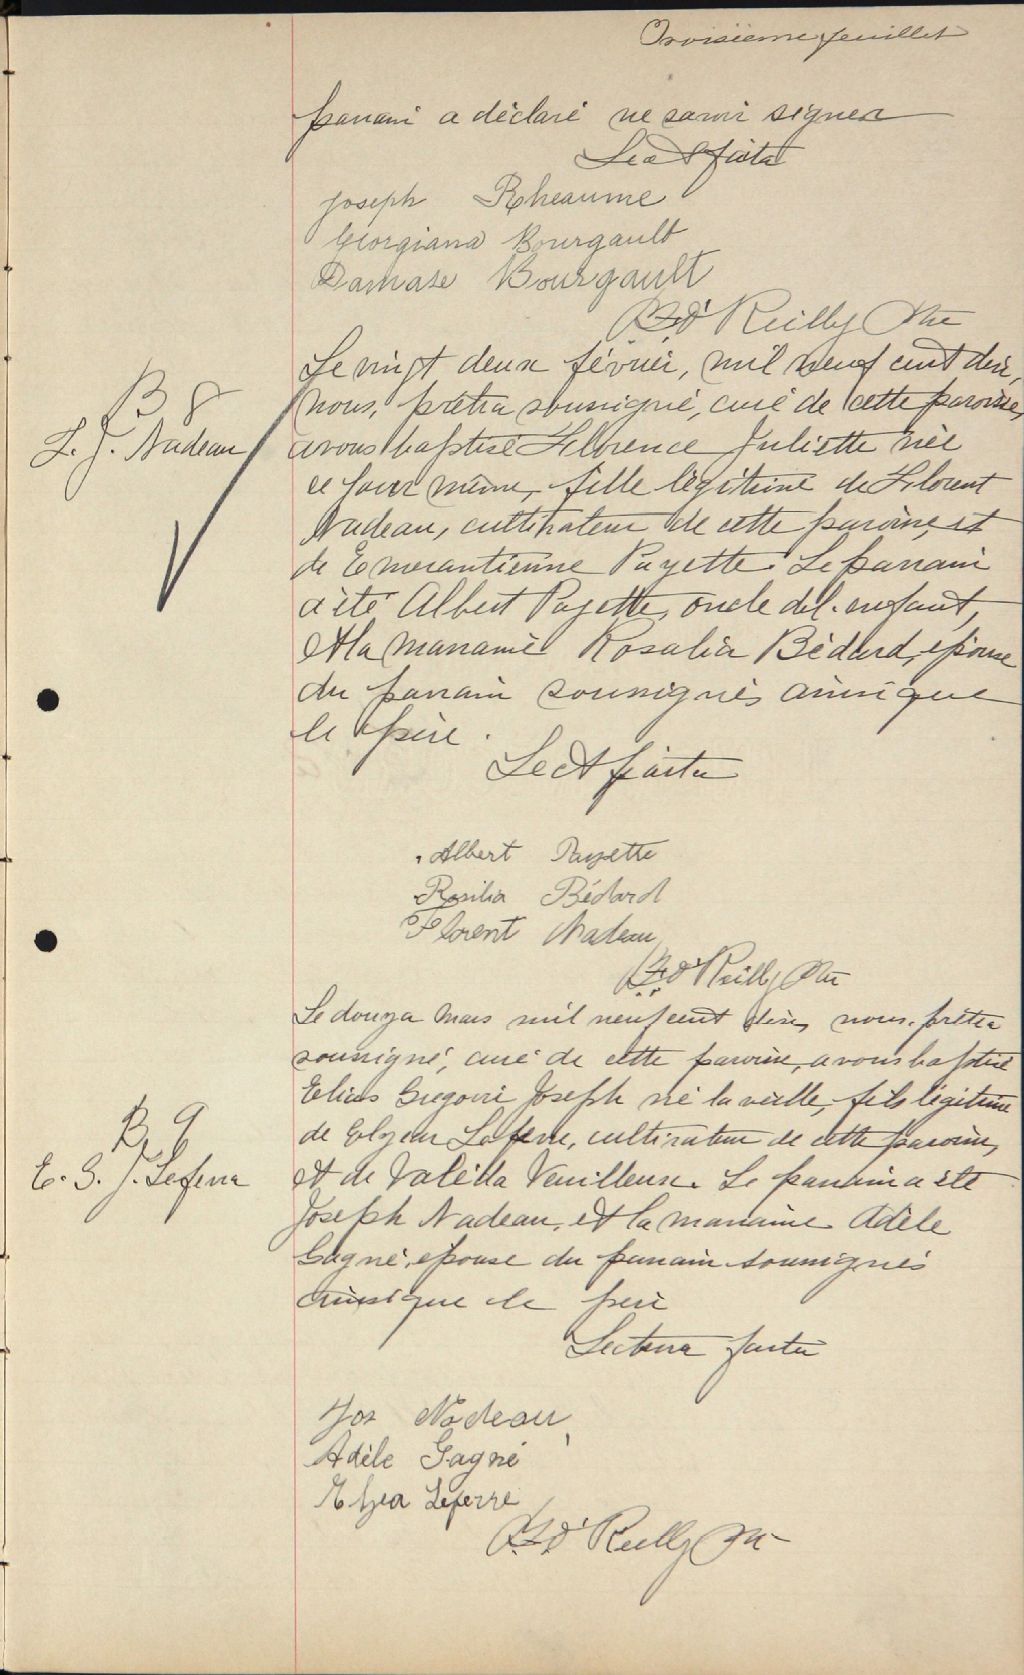 Troisième feuillet
parrain a déclaré ne savoir signer
Lect faite
Joseph Rheaume
Georgiana Bourgault
Damase Bourgault
O'Reilly Ptre
Le vingt deux février, mil neuf cent dix,
nous, prêtre soussigné, curé de cette paroisse,
B 8
F. J. Nadeau
avons baptisé Florence Juliette née
ce jour même, fille légitime de Florent
Nadeau, cultivateur de cette paroisse, et
de Emerantienne Payette. Le parrain
a été Albert Payette, oncle de l'enfant,
et la marraine Rosalia Bédard, épouse
du parrain soussignés ainsi que
le père.
Lect faite
Albert Payette
Rosilia Bédard
Florent Nadeau
O'Reilly Ptre
Le douze Mars mil neuf cent dix, nous, prêtre
soussigné, curé de cette paroisse, avons baptisé
Elias Gregoire Joseph né la veille, fils légitime
B. 9
E. G. J. Leferre
de Elzear Leferre, cultivateur de cette paroisse,
et de Valéda Veuilleux. Le parrain a été
Joseph Nadeau, et la marraine Adèle
Gagné, épouse du parrain soussignés
ainsi que le père
Lecture faite
Jos Nadeau
Adèle Gagné
Elzea Leferre
O'Reilly Ptr